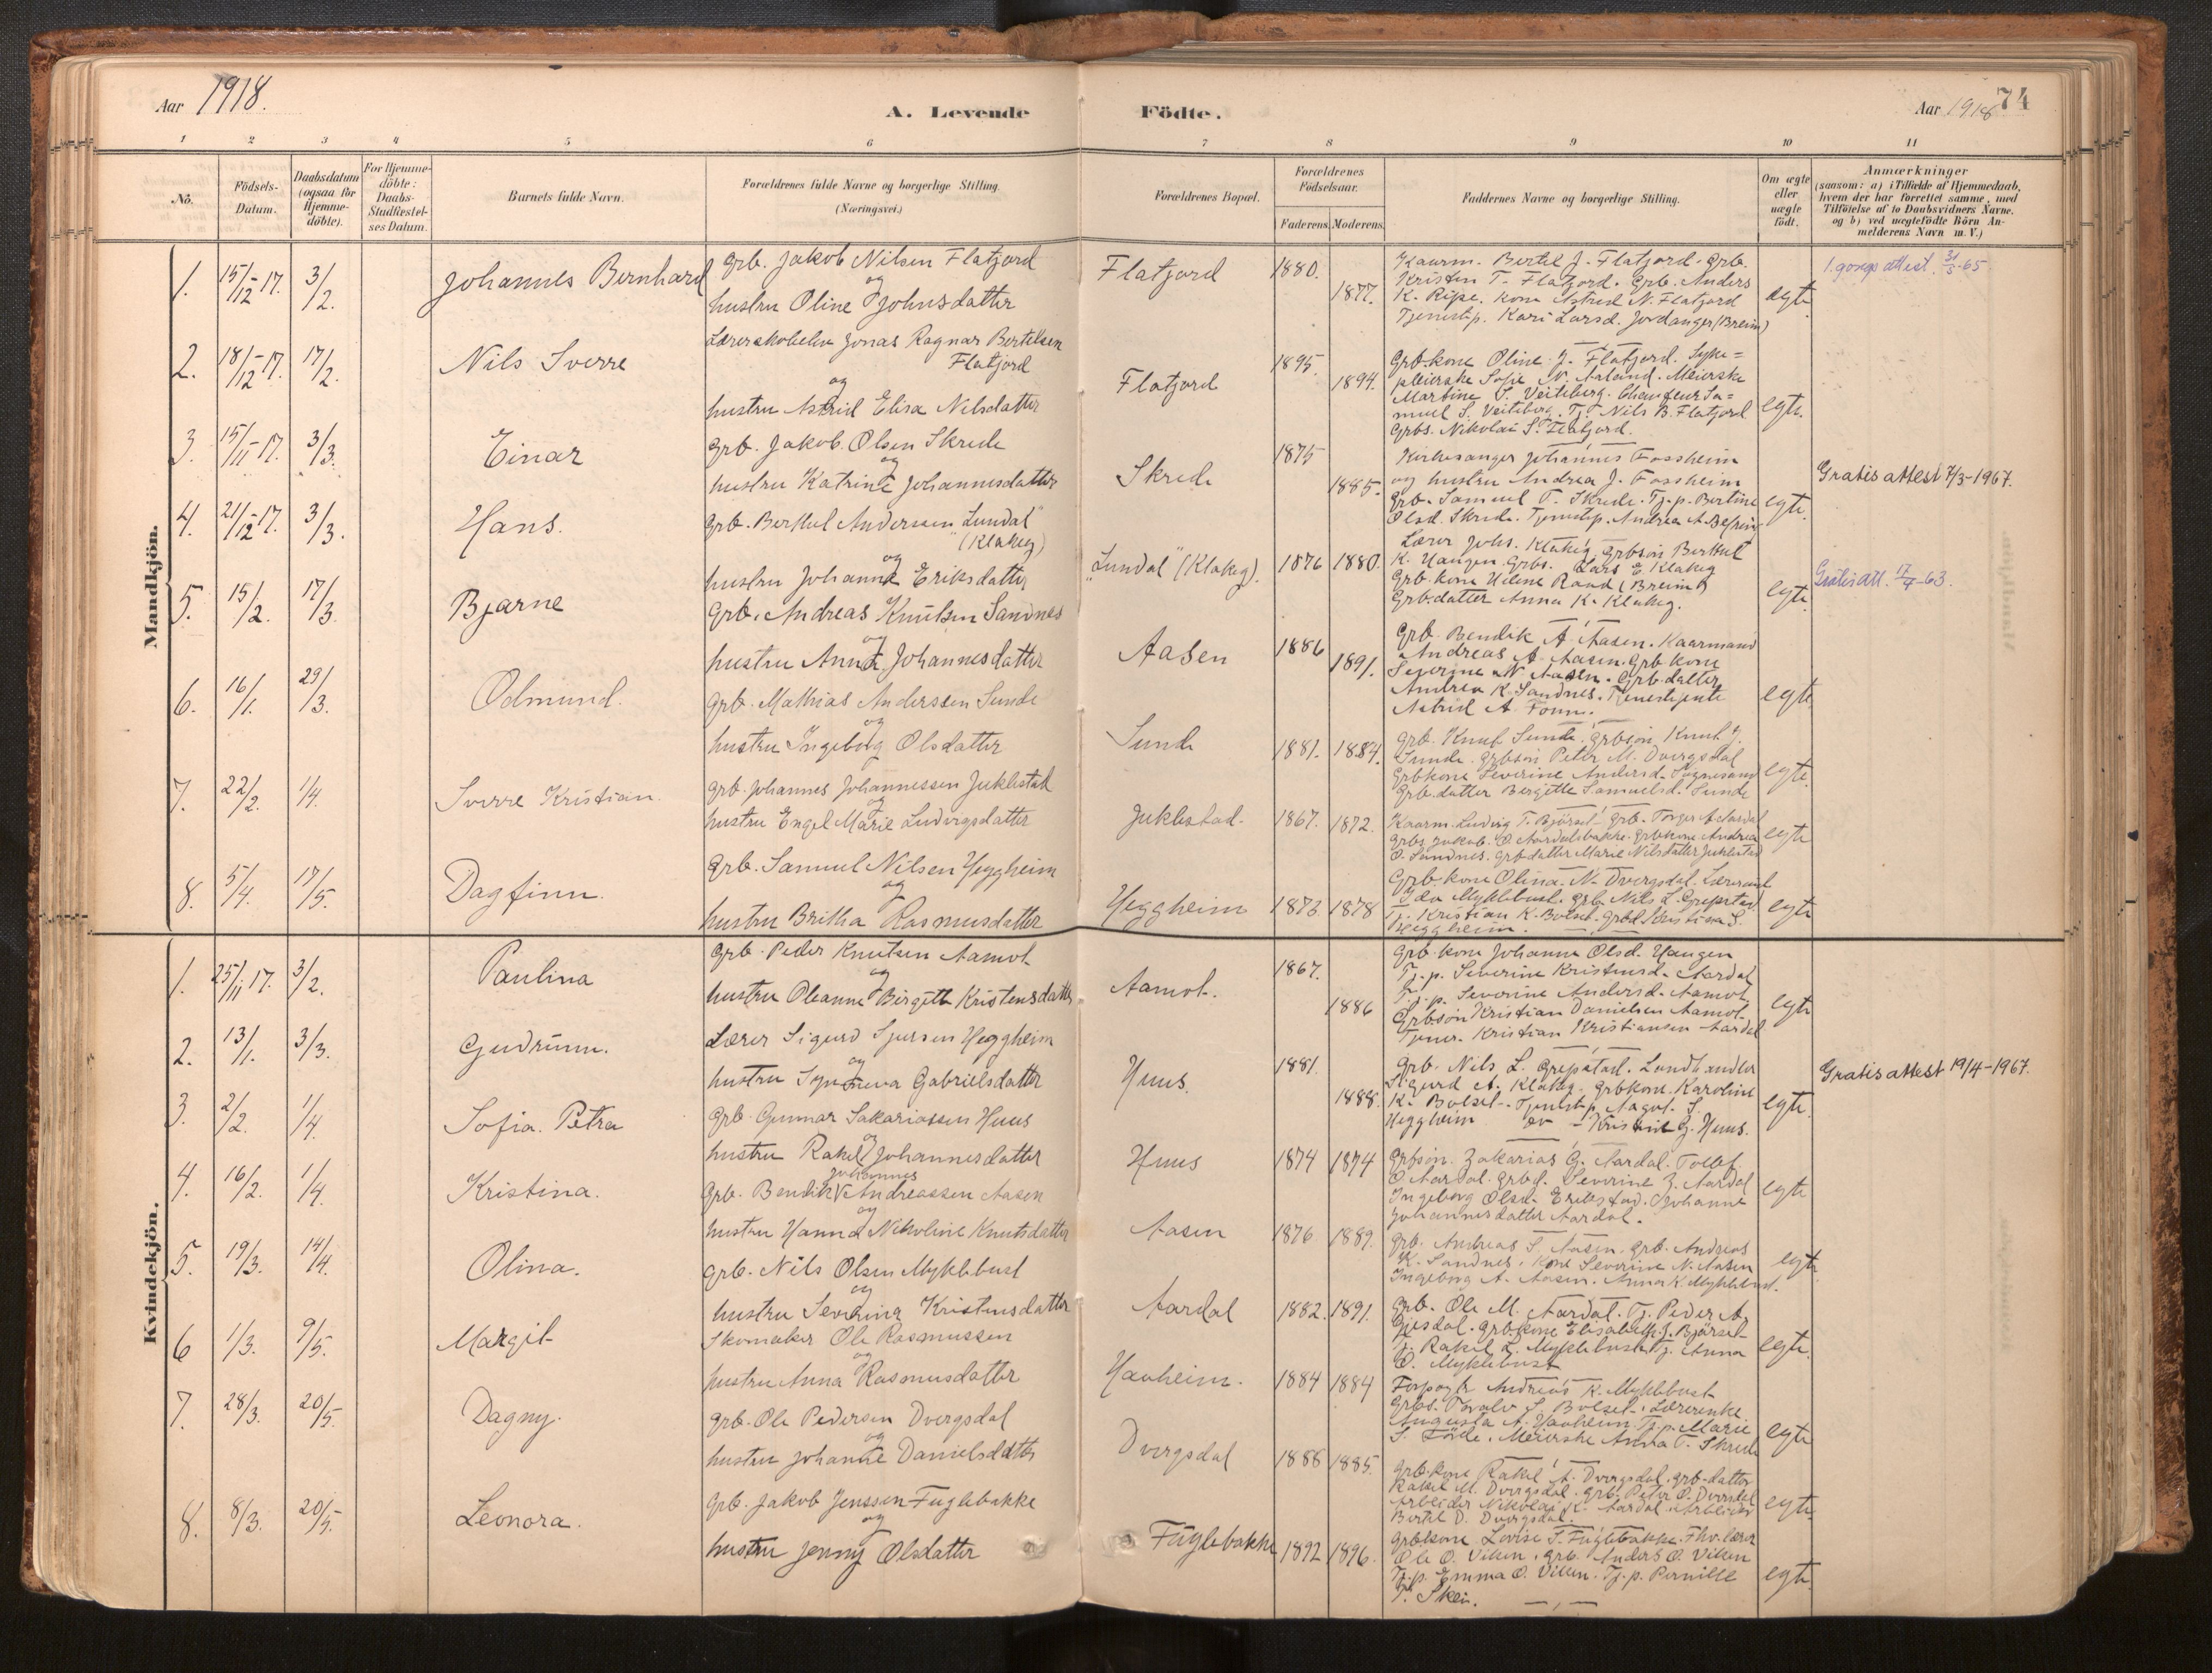 Aar 1918.
A. Levende Födte.
Aar 1918
74
1 2 3 4 5 6 7 8 9 10 11
No.
Födsels-Datum.
Daabsdatum (ogsaa for Hjemme-döbte).
For Hjemme-döbte: Daabs-Stadfæstel-ses Datum.
Barnets fulde Navn.
Forældrenes fulde Navne og borgerlige Stilling. (Næringsvei.)
Forældrenes Bopæl.
Forældrenes Födselsaar.
Faderens. Moderens.
Faddernes Navne og borgerlige Stilling.
Om ægte eller uægte födt.
Anmærkninger (saasom: a) i Tilfælde af Hjemmedaab, hvem der har forrettet samme, med Tilföielse af to Daabsvidners Navne, og b) ved uægtefödte Börn An-melderens Navn m. V.)
Mandkjön.
1. 15/12-17. 3/2. Johannes Bernhard
Grb. Jakob Nilsen Flatjord
og
hustru Oline Johnsdatter
Flatjord 1880. 1877.
Kaarm. Bertel J. Flatjord. Grb.
Kristen T. Flatjord. Grb. Anders
K. Ripe. Kone Astrid N. Flatjord
Tjenestp. Kari Larsd. Jordanger (Breim)
egte
1.gongs attest. 31/5-65.
2. 18/12-17. 17/2. Nils Sverre
Lærerskoleelev Jonas Ragnar Bertelsen
Flatjord
og
hustru Astrid Elisa Nilsdatter
Flatjord 1895. 1894.
Grb.kone Oline J. Flatjord. Syke=
pleierske Sofie N. Årland. Meierske
Martine S. Veiteberg. Chauffeur Sa=
muel S. Veiteberg. Tj. Nils B. Flatjord
Grbs. Nikolai S. Flatjord.
egte.
3. 15/11-17. 3/3. Einar
Grb. Jakob Olsen Skrede
og
hustru Katrine Johannesdatter
Skrede 1875 1885.
Kirkesanger Johannes Fossheim
og hustru Andrea J. Fossheim
Grb. Samuel T. Skrede. Tj.p. Bertine
Olsd. Skrede. Tjenestp. Andrea A. Befring
egte.
Gratis attest 7/3-1967.
4. 21/12-17. 3/3. Hans.
Grb. Berthel Andersen "Lundal"
(Klakeg)
og
hustru Johanne Eriksdatter
"Lundal" (Klakeg). 1876 1880.
Lærer Johs. Klakeg. Grbsön Berthel
K. Haugen. Grbs. Lars E. Klakeg
Grb.kone Helene Rand (Breim)
Grb.datter Anna K. Klakeg.
egte.
Gratis att. 17/7-63.
5. 15/2. 17/3 Bjarne
Grb. Andreas Knutsen Sandnes
og
hustru Anna Johannesdatter
Aasen 1886 1891.
Grb. Bendik A. Aasen. Kaarmand
Andreas A. Aasen. Grb.kone
Severine N. Aasen. Grb.datter
Andrea K. Sandnes. Tjenestjente
Astrid A. Fonn.
egte.
6. 16/1. 29/3. Odmund.
Grb. Mathias Anderssen Sunde
og
hustru Ingeborg Olsdatter
Sunde 1881. 1884.
Grb. Knut Sunde. Grbsön Knut J.
Sunde. Grbsön Peter M. Dvergsdal
Grbkone Severine Andersd. Sygnesand
Grb.datter Bergitte Samuelsd. Sunde
egte.
7. 22/2. 1/4. Sverre Kristian.
Grb. Johannes Johannessen Juklestad
og
hustru Engel Marie Ludvigsdatter
Juklestad. 1867. 1872.
Kaarm. Ludvig T. Björset. Grb. Torger A. Aardal
Grbs. Jakob O. Aardalsbakke. Grbkone Andrea
O. Sandnes. Grbdatter Marie Nilsdatter Juklestad
egte
8. 5/4. 17/5. Dagfinn.
Grb. Samuel Nilsen Heggheim
og
hustru Britha Rasmusdatter
Heggheim 1873 1878
Grb.kone Olina N. Dvergsdal. Lærerinde
Ida Myklebust. Grb. Nils L. Grepstad
Tj. Kristian K. Bolset. Grbd. Kristina S.
Heggheim.
egte
Kvindekjön.
1. 25/11-17. 3/2. Paulina
Grb. Peder Knutsen Aamot
og
hustru Oleanna Birgitte Kristensdatter
Aamot. 1867. 1886
Grb.kone Johanna Olsd. Haugen
Tj.p. Severine Kristensd. Aardal
Tj.p. Severine Andersd. Aamot
Grbsön Kristian Danielsen Aamot.
Tjener Kristian Kristiansen Aardal
egte
2. 13/1. 3/3. Gudrun.
Lærer Sigurd Sjursen Heggheim
og
hustru Synneva Gabrielsdatter
Huus. 1881. 1888.
Grb. Nils L. Grepstad. Landhandler
Sigurd A. Klakeg. Grbkone Karoline
K. Bolset. Tjenestp. Aagot S.
Heggheim og Kristine G. Huus.
egte.
Gratis attest 19/4-1967.
3. 2/2. 1/4. Sofia Petra
Grb. Gunnar Sakariassen Huus
og
hustru Rakel Johannesdatter
Huus 1874 1874
Grbsön Zakarias G. Aardal. Tollef
O. Aardal. Grbd. Severine Z. Aardal
Ingeborg Olsd. Erikstad. Johanne
Johannesdatter Aardal.
egte
4. 16/2. 1/4. Kristina.
Grb. Bendik Johannes Andreassen Aasen
og
hustru Hanna Nikoline Knutsdatter
Aasen 1876 1889.
Grb. Andreas S. Aasen. Grb. Andreas
K. Sandnes. Kone Severine N. Aasen
Ingeborg A. Aasen. Anna K. Myklebust.
egte
5. 19/3. 14/4. Olina.
Grb. Nils Olsen Myklebust
og
hustru Severina Kristensdatter
Aardal 1882. 1891.
Grb. Ole M. Aardal. Tj. Peder A.
Gjesdal. Grbkone Elisabeth J. Björset
Tj. Rakel L. Myklebust. Tj. Anna
O. Myklebust
egte.
6 1/3. 9/5. Margit
Skomaker Ole Rasmussen
og
hustru Anna Rasmusdatter
Havheim. 1884 1884
Forpagter Andreas K. Myklebust
Grbs. Torvald S. Bolset. Lærerenke
Augusta A. Havheim. Tj.p. Marie
S. Förde. Meierske Anna T. Skrede
egte
7. 28/3. 20/5. Dagny.
Grb. Ole Pedersen Dvergsdal
og
hustru Johanne Danielsdatter
Dvergsdal 1888 1885.
Grb.kone Rakel A. Dvergsdal. Grb.datter
Rakel M. Dvergsdal. Grb. Peter O. Dvergsdal
Arbeider Nikolai K. Aardal. Arbeider
Bertel D. Dvergsdal.
egte
8. 8/3. 20/5. Leonora.
Grb. Jakob Jenssen Fuglebakke
og
hustru Jenny Olsdatter
Fuglebakke 1892 1896.
Grbkone Lovise T. Fuglebakke. Fhv. lærer
Ole O. Viken. Grb. Anders O. Viken
Tj.p. Emma O. Viken. Tj.p. Pernille
T. Skei.
egte